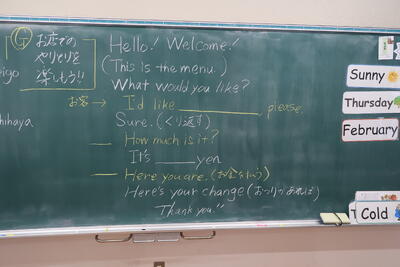 Ⓖ お店での
やりとりを
楽しもう!!
eigo
hihaya
Hello! Welcome!
(This is the menu.)
What would you like?
お客→ I'd like ______ please.
Sure. (くり返す)
How much is it?
It's ____ yen.
Here you are. (お金をはらう)
Here's your change (おつりがあれば)
Thank you."
Sunny
Thursday
February
Cold